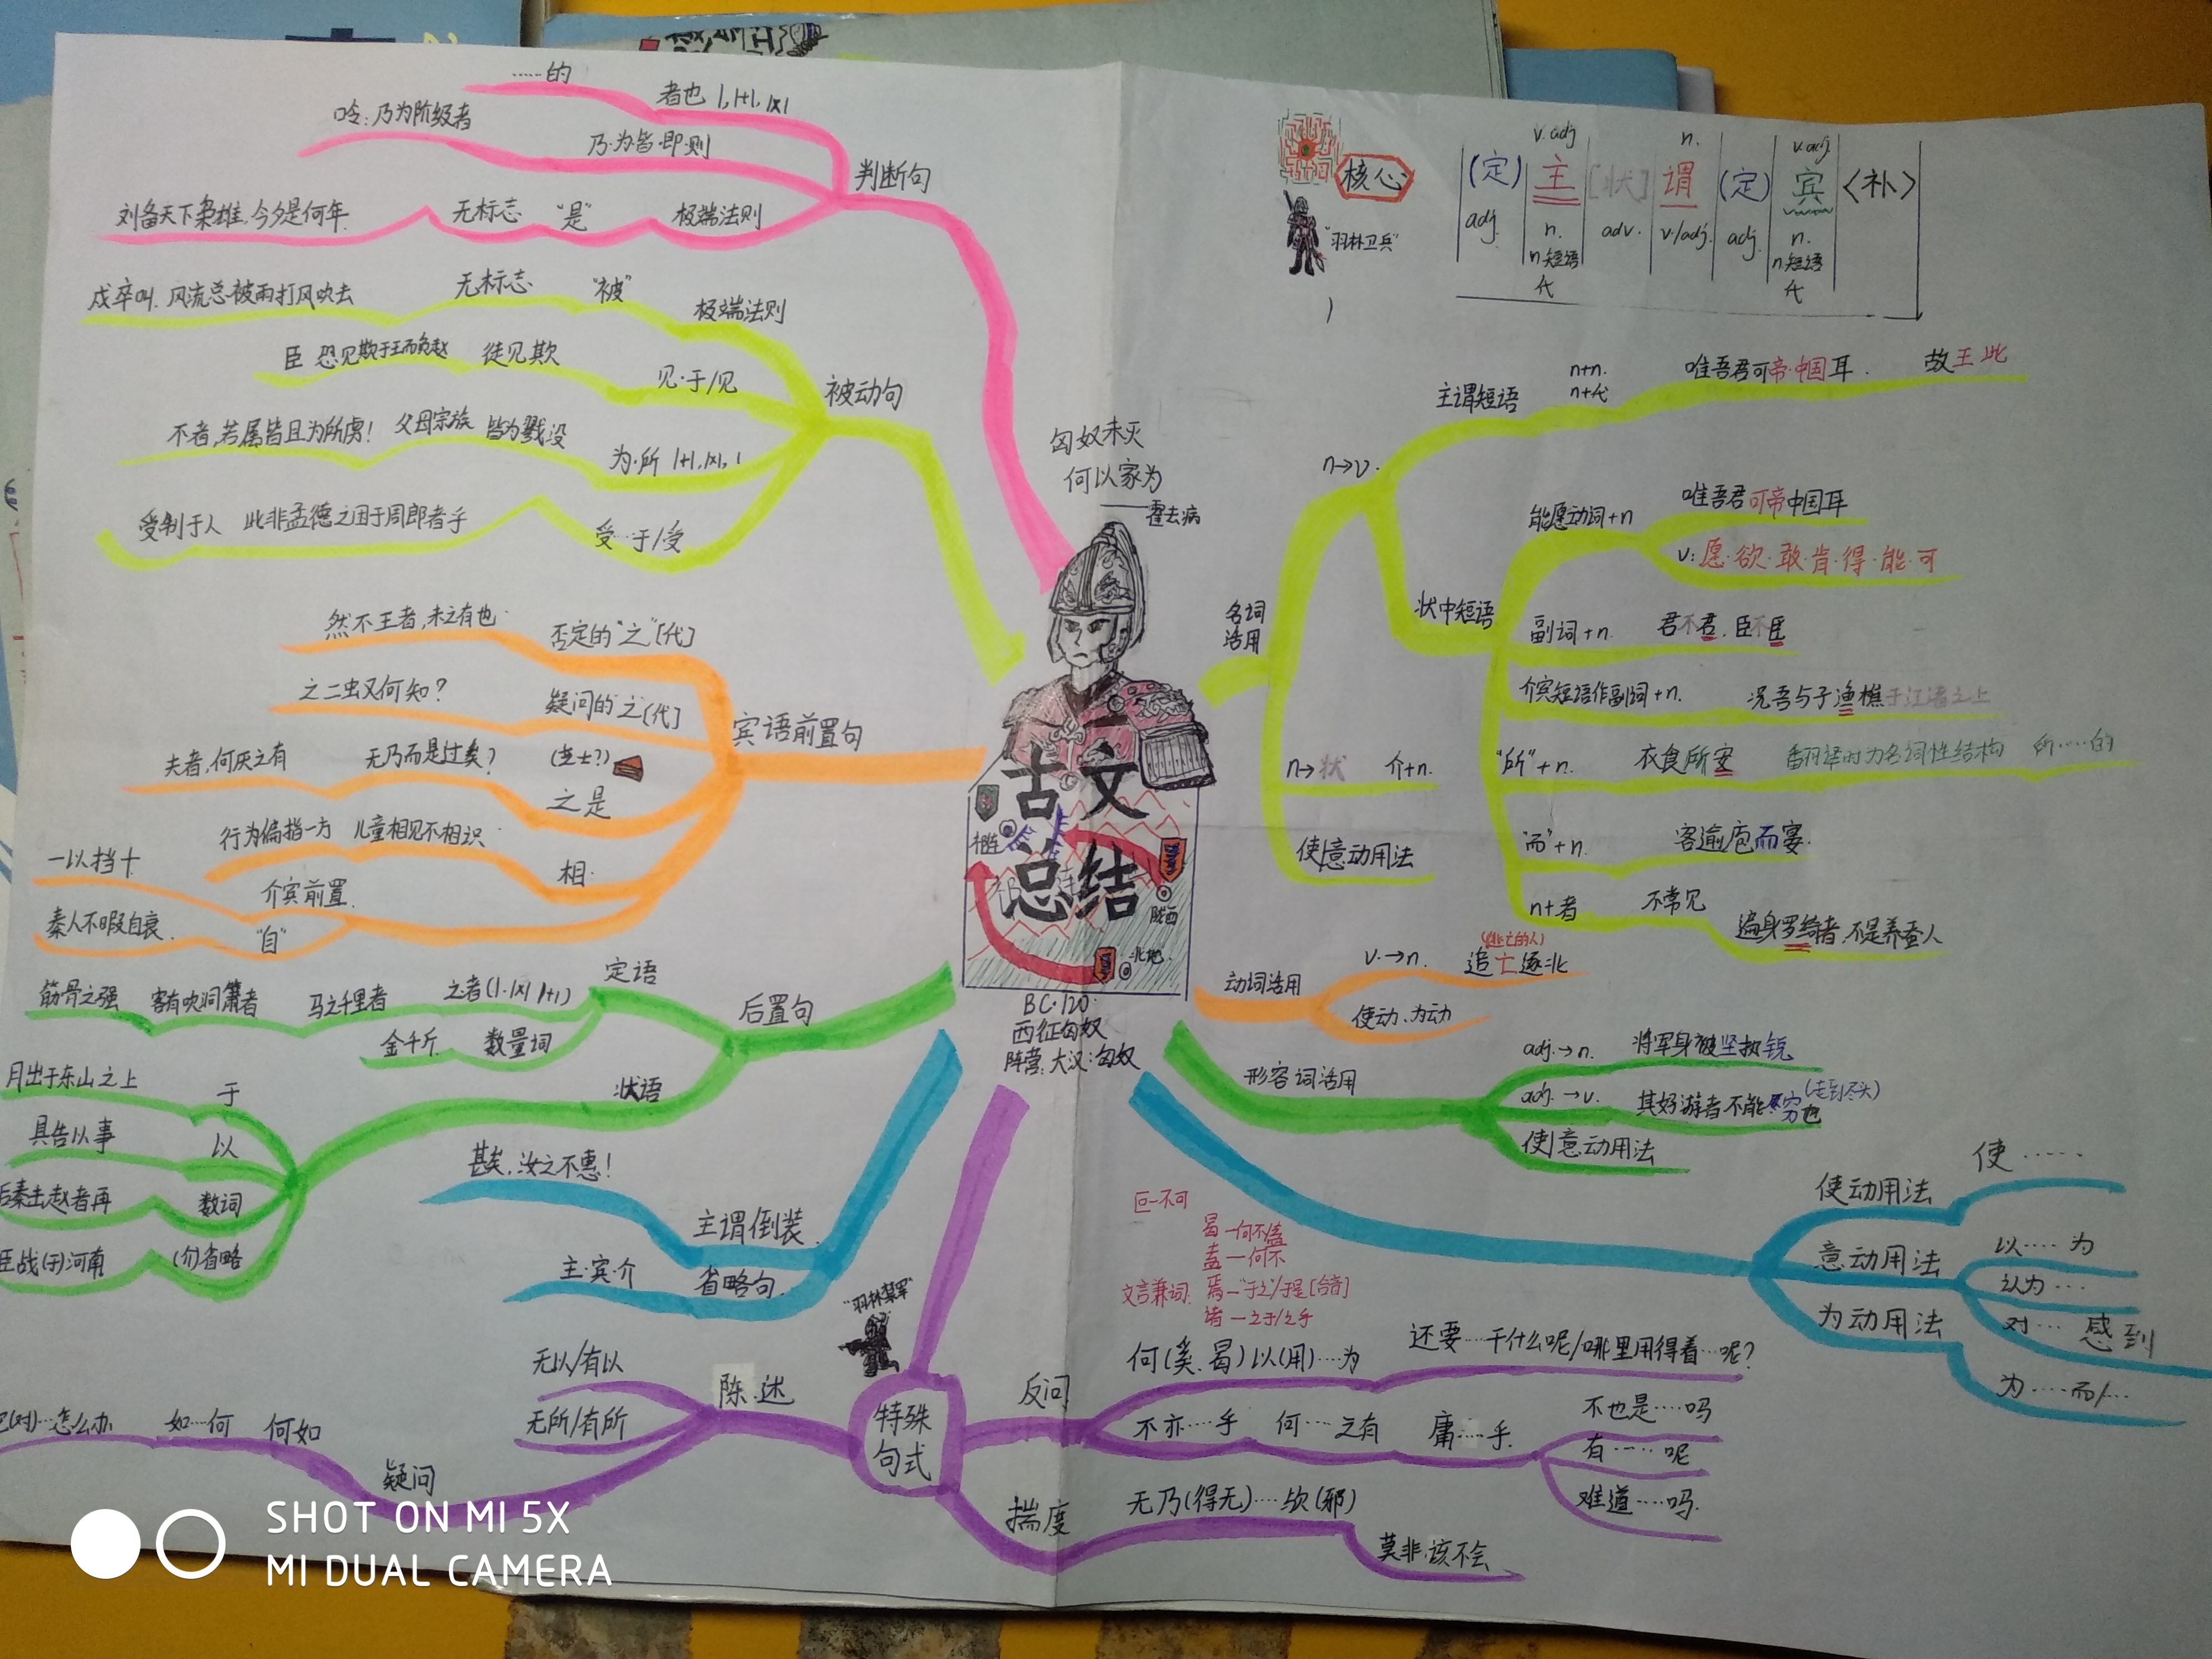 ……的
者也 1, 1+1, 1×1
吟:乃为阶级者
乃·为皆·即·则
判断句
刘备天下枭雄,今夕是何年
无标志
“是”
极端法则
戍卒叫,风流总被雨打风吹去
无标志
“被”
极端法则
臣 恐见欺于王而负赵
徒见欺
见·于/见
被动句
不者,若属皆且为所虏!
父母宗族 皆为戮没
为·所 1+1, 1×1, 1
受制于人
此非孟德之困于周郎者乎
受…于/受
然不王者,未之有也
否定的“之”[代]
之二虫又何知?
疑问的“之[代]
宾语前置句
夫晋,何厌之有
无乃而是过矣?
(芝士?)
之 是
行为偏指一方
儿童相见不相识
相
一以挡十
介宾前置
秦人不暇自哀
“自”
筋骨之强
客有吹洞箫者
马之千里者
之者(1·1×1 1+1)
定语
后置句
金千斤
数量词
月出于东山之上
于
状语
具告以事
以
后秦击赵者再
数词
臣战(于)河南
省略
甚矣,汝之不惠!
主谓倒装
主·宾·介
省略句
匈奴未灭
何以家为
——霍去病
古文
总结
陇西
北地
BC·120·
西征匈奴
阵营:大汉:匈奴
核心
“羽林卫兵”
v. adj
n.
v. adj.
(定) 主 [状] 谓 (定) 宾 <补>
adj. n. adv. v/adj. adj. n.
n短语
n短语
代
代
名词
活用
n→v.
主谓短语
n+n.
n+代
唯吾君可帝·中国耳.
故王此
状中短语
能愿动词+n
唯吾君可帝中国耳
v:愿·欲·敢·肯·得·能·可
副词+n.
君不君,臣不臣
介宾短语作副词+n.
况吾与子渔樵于江渚之上
“所”+n.
衣食所安
翻译时为名词性结构
所……的
“而”+n.
客逾庖而宴.
n+者
不常见
遍身罗绮者,不是养蚕人
n→状
介+n.
使|意动用法
动词活用
v.→n.
(逃亡的人)
追亡逐北
使动、为动
形容词活用
adj.→n.
将军身被坚执锐
adj.→v.
其好游者不能穷也
(走到尽头)
使|意动用法
使动用法
使……
意动用法
以……为
认为…
对…感到
为动用法
为……而/…
叵—不可
曷—何不
盍—何不
文言兼词:
焉—“于之”/于是[合音]
诸—之于/之乎
“羽林禁军”
特殊
句式
陈述
无以/有以
无所/有所
疑问
何如
如…何
…怎么办
反问
何(奚、曷)以(用)……为
还要……干什么呢/哪里用得着…呢?
不亦……乎
何……之有
庸……乎
不也是……吗
有……呢
难道……吗
揣度
无乃(得无)……欤(邪)
莫非·该不会
SHOT ON MI 5X
MI DUAL CAMERA